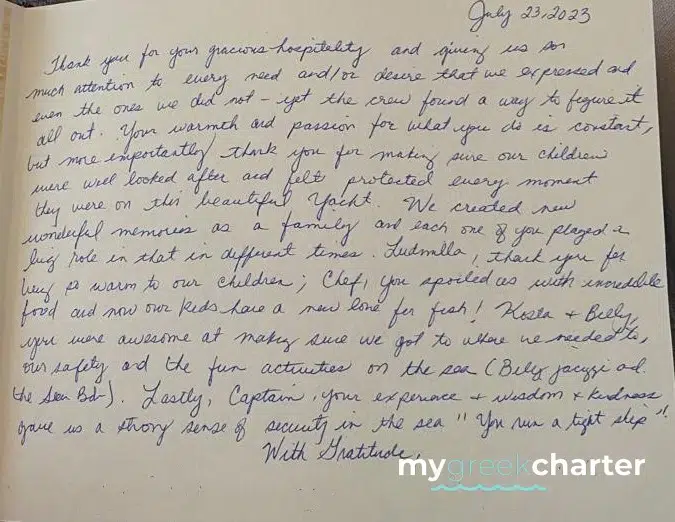 July 23, 2023
Thank you for your gracious hospitality and giving us so
much attention to every need and/or desire that we expressed and
even the ones we did not - yet the crew found a way to figure it
all out. Your warmth and passion for what you do is constant,
but more importantly thank you for making sure our children
were well looked after and felt protected every moment
they were on this beautiful Yacht. We created new
wonderful memories as a family and each one of you played a
big role in that in different times. Ludmilla, thank you for
being so warm to our children, Chef, you spoiled us with incredible
food and now our kids have a new love for fish! Kosta + Billy,
you were awesome at making sure we got to where we needed to,
our safety and the fun activities on the sea (Billy jacuzzi and
the Sea Bob). Lastly, Captain, your experience + wisdom + kindness
gave us a strong sense of security in the sea "You run a tight ship".
With Gratitude,
mygreekcharter